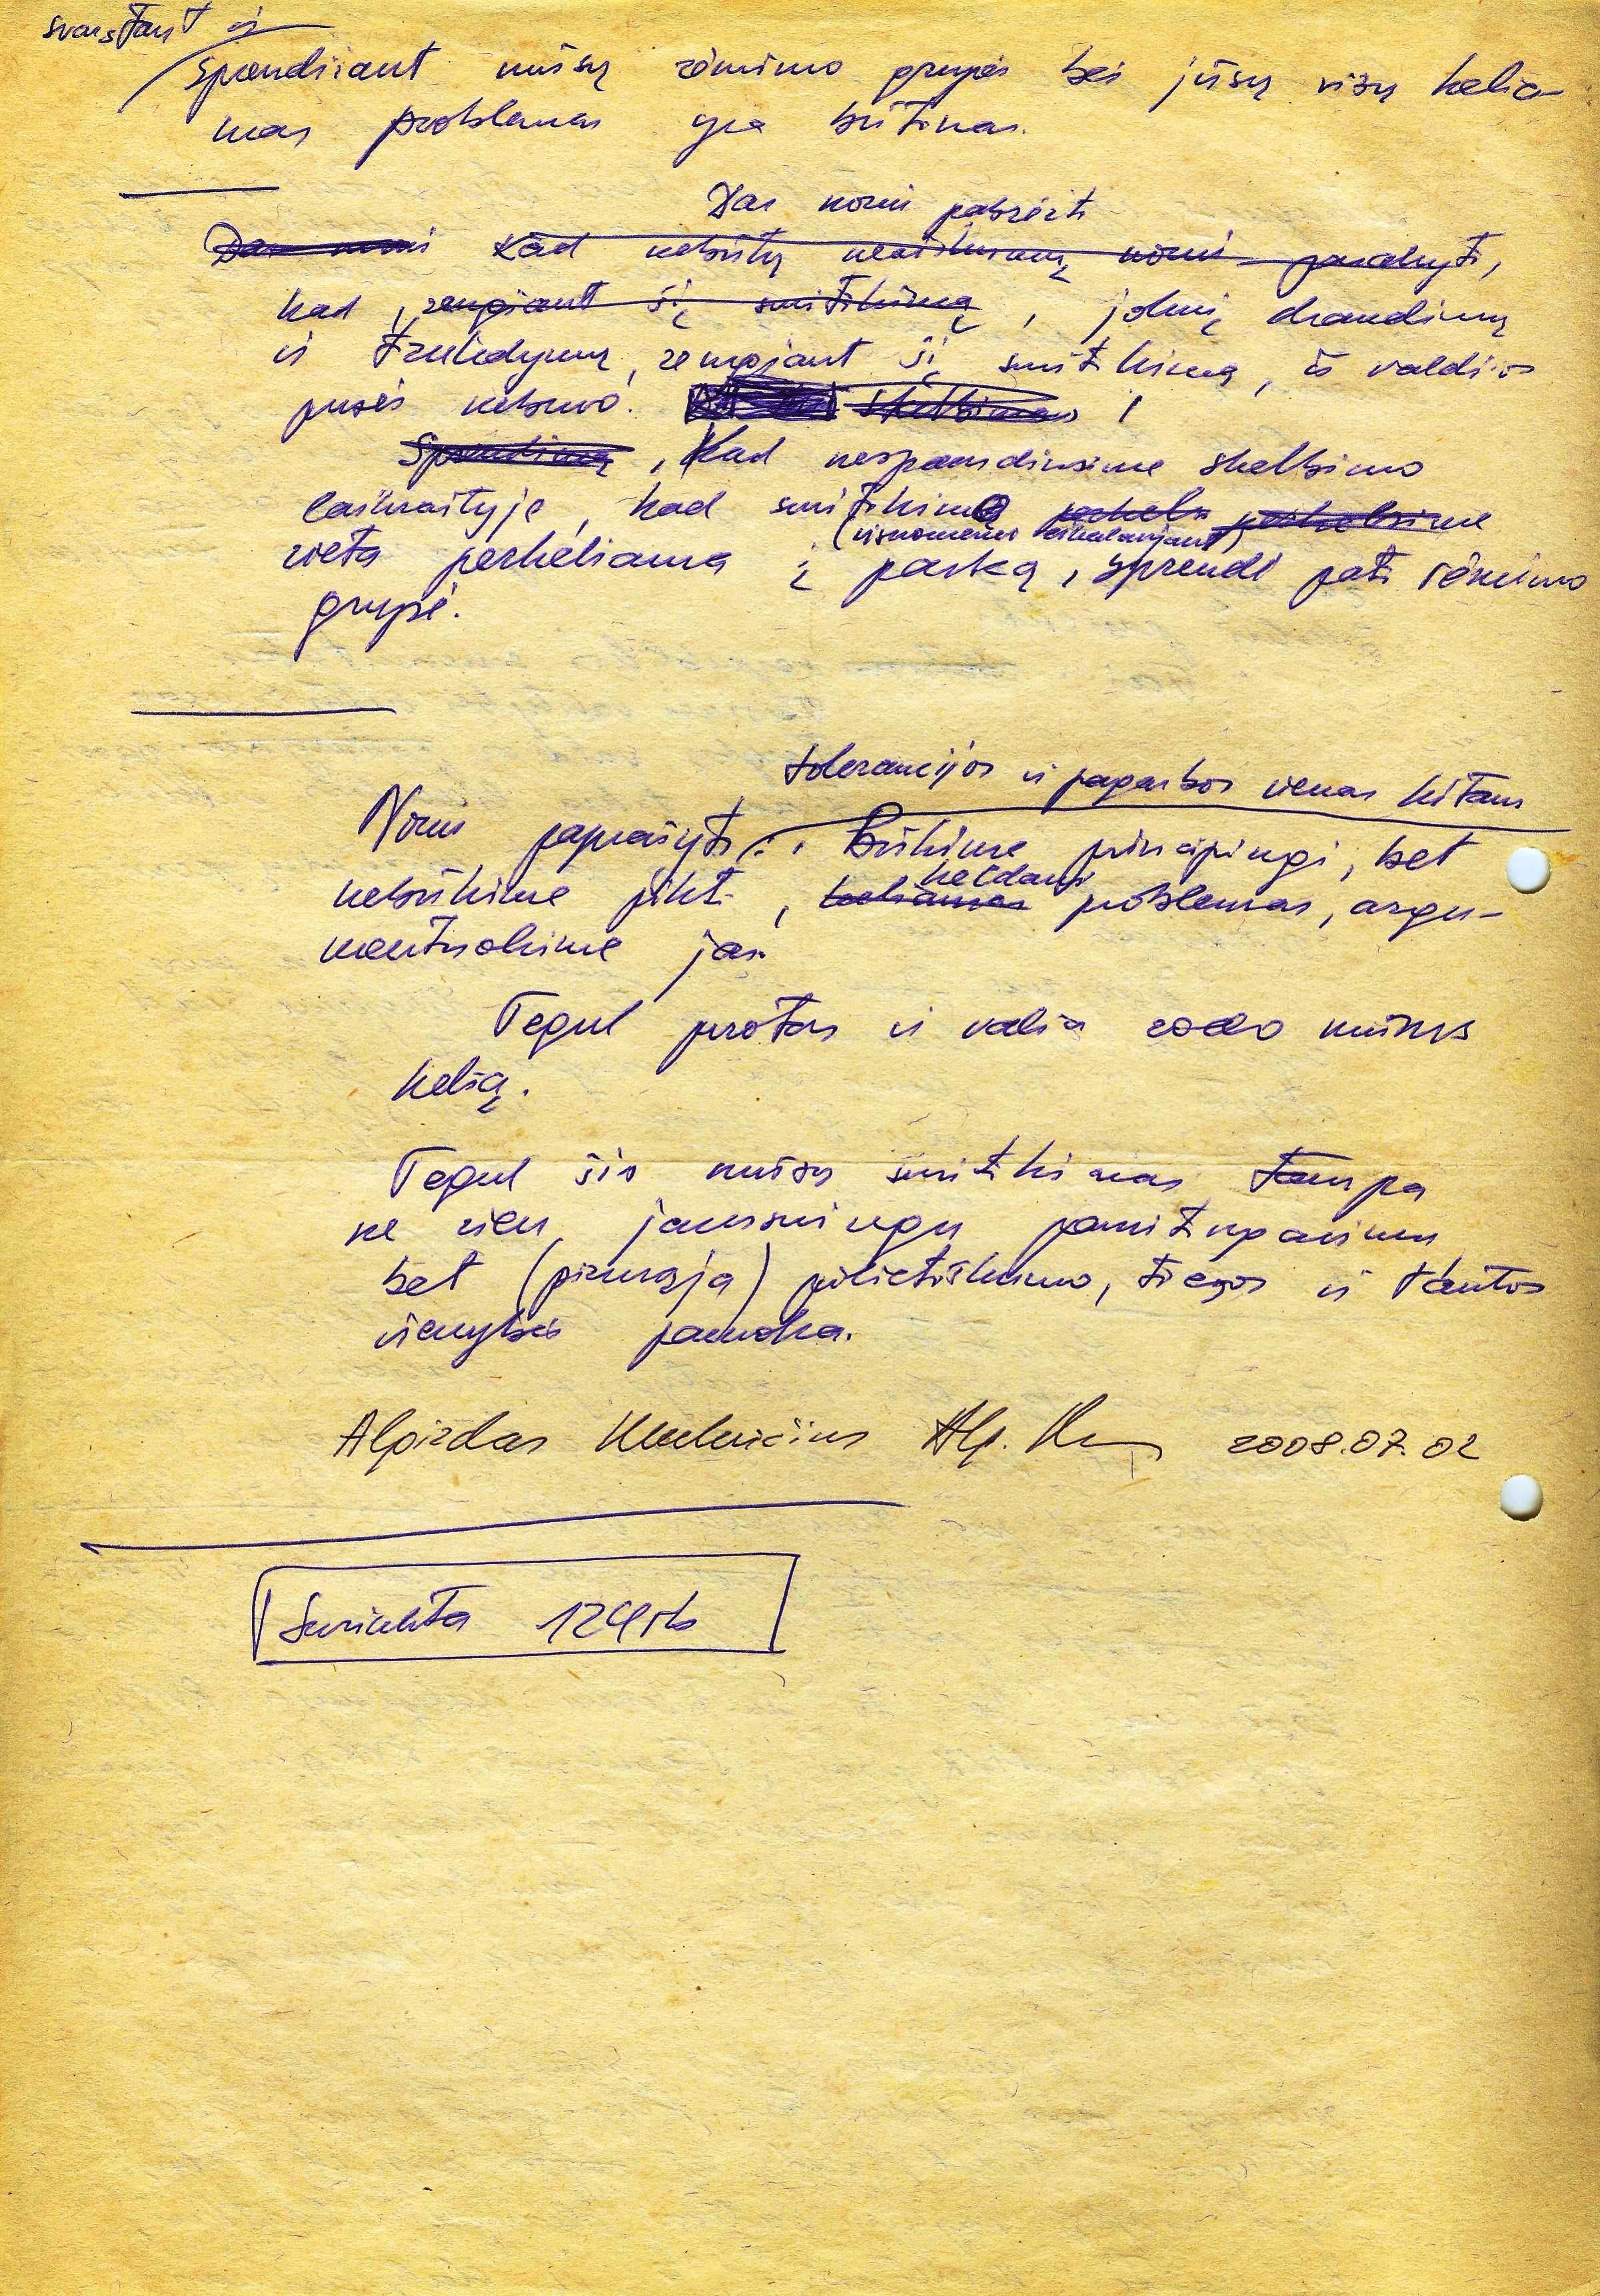 svarstant ir
sprendžiant mūsų rėmimo grupės bei jūsų visų kelia-
mas problemas yra būtinas.
Dar noriu pabrėžti
Dar noriu Kad nebūtų neaiškumų noriu pasakyti,
kad, rengiant šį susitikimą, jokių draudimų
ir trukdymų, rengiant šį susitikimą, iš valdžios
pusės nebuvo. skelbimas
Sprendimą, Kad nespausdinsime skelbimo
laikraštyje, kad susitikimo perkels perkelsime
(visuomenei reikalaujant)
vieta perkeliama į parką, sprendė pati rėmimo
grupė.
tolerancijos ir pagarbos vienas kitam
Noriu paprašyti: Būkime principingi, bet
keldami
nebūkime pikti, keliamas problemas, argu-
mentuokime jas.
Tegul protas ir valia rodo mums
kelią.
Tegul šis mūsų susitikimas tampa
ne vien jausmingu pamitingavimu
bet (pirmąja) pilietiškumo, tiesos ir tautos
vienybės pamoka.
Algirdas 2008.07.02
Surinkta 124rb